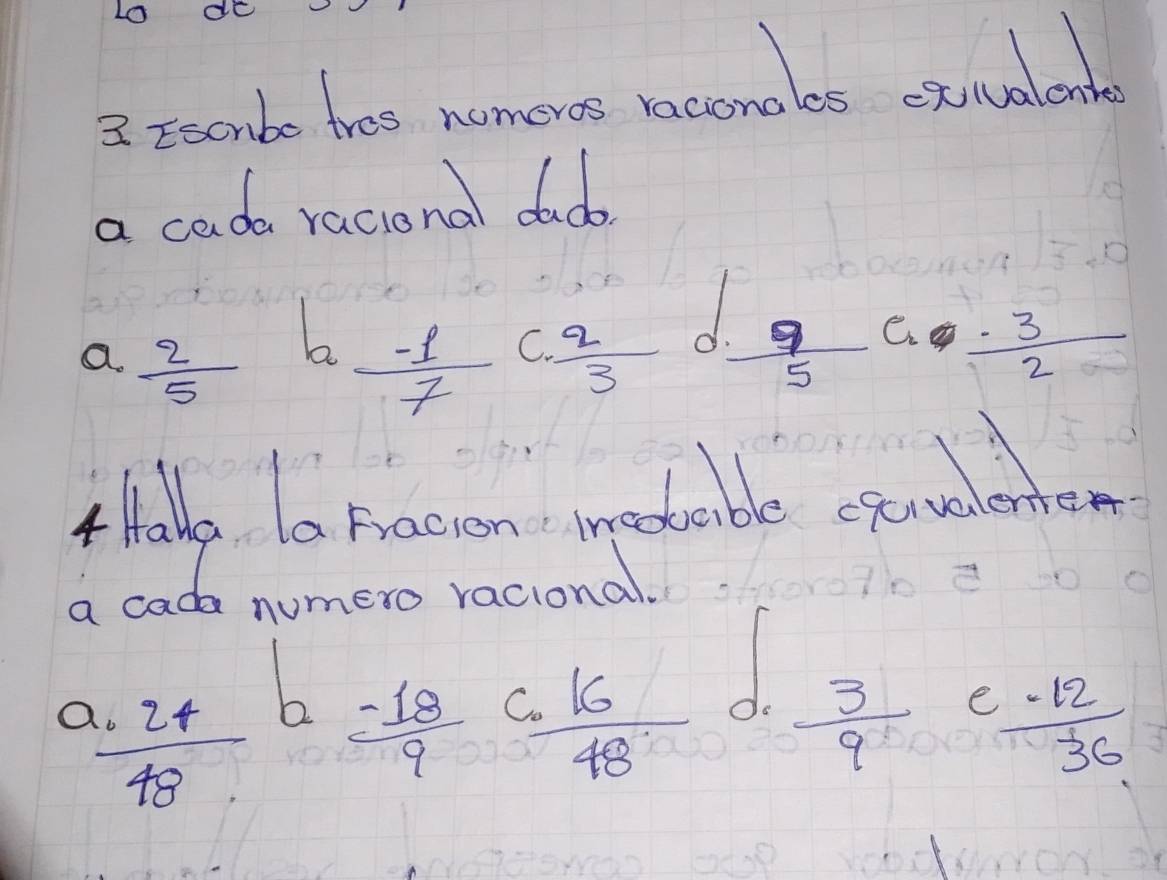 lo de
3. Escribe tres numeros racionales equivalentes
a cada racional dado.
a. 2/5 b -1/7 c. 2/3 d. 9/5 e. -3/2
4 Halla la Fracion irreducible equivalente
a cada numero racional.
a. 24/48 b -18/9 c. 16/48 d. 3/9 e -12/36